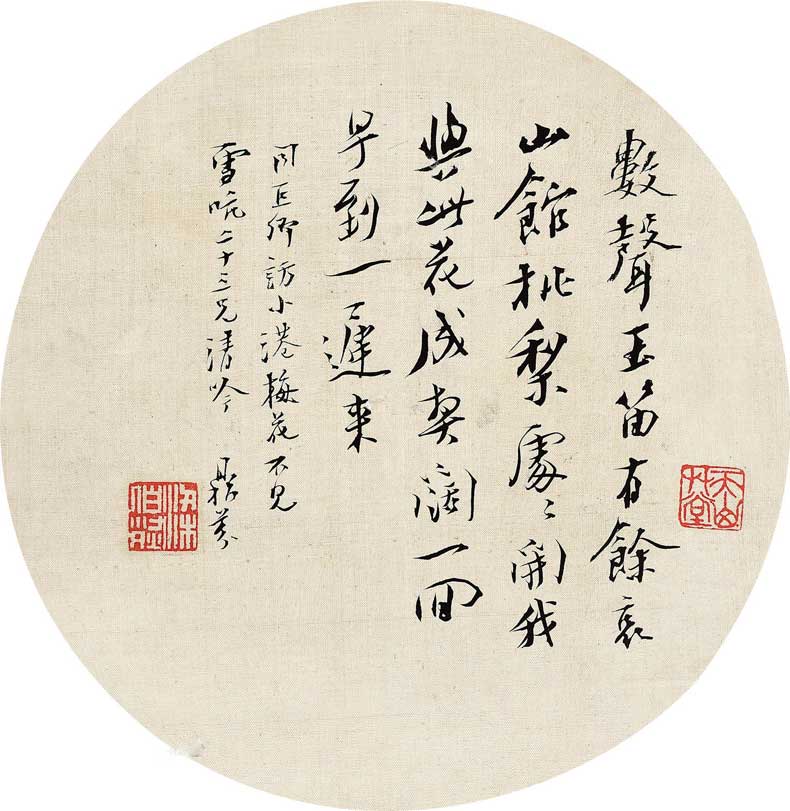 數聲玉笛有餘哀
山館桃梨處〻開我
與此花成契闊一回
早到一遲來
同卿訪小港梅花不見
雪二十三兄清吟 鼎芬